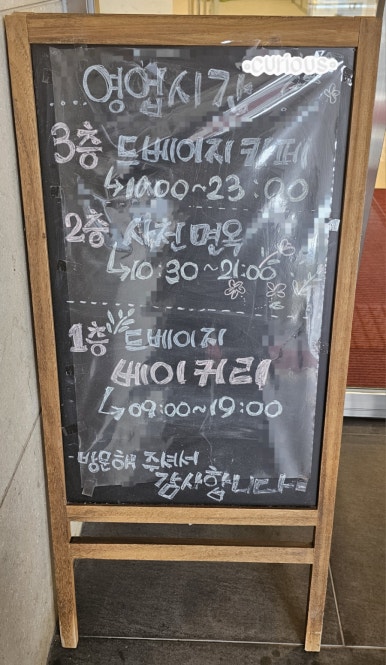 *curious*
영업시간
3층 드베이지 카페
↳10:00~23:00
2층 사천면옥
↳10:30~21:00
1층 드베이지
베이커리
↳09:00~19:00
방문해 주셔서
감사합니다